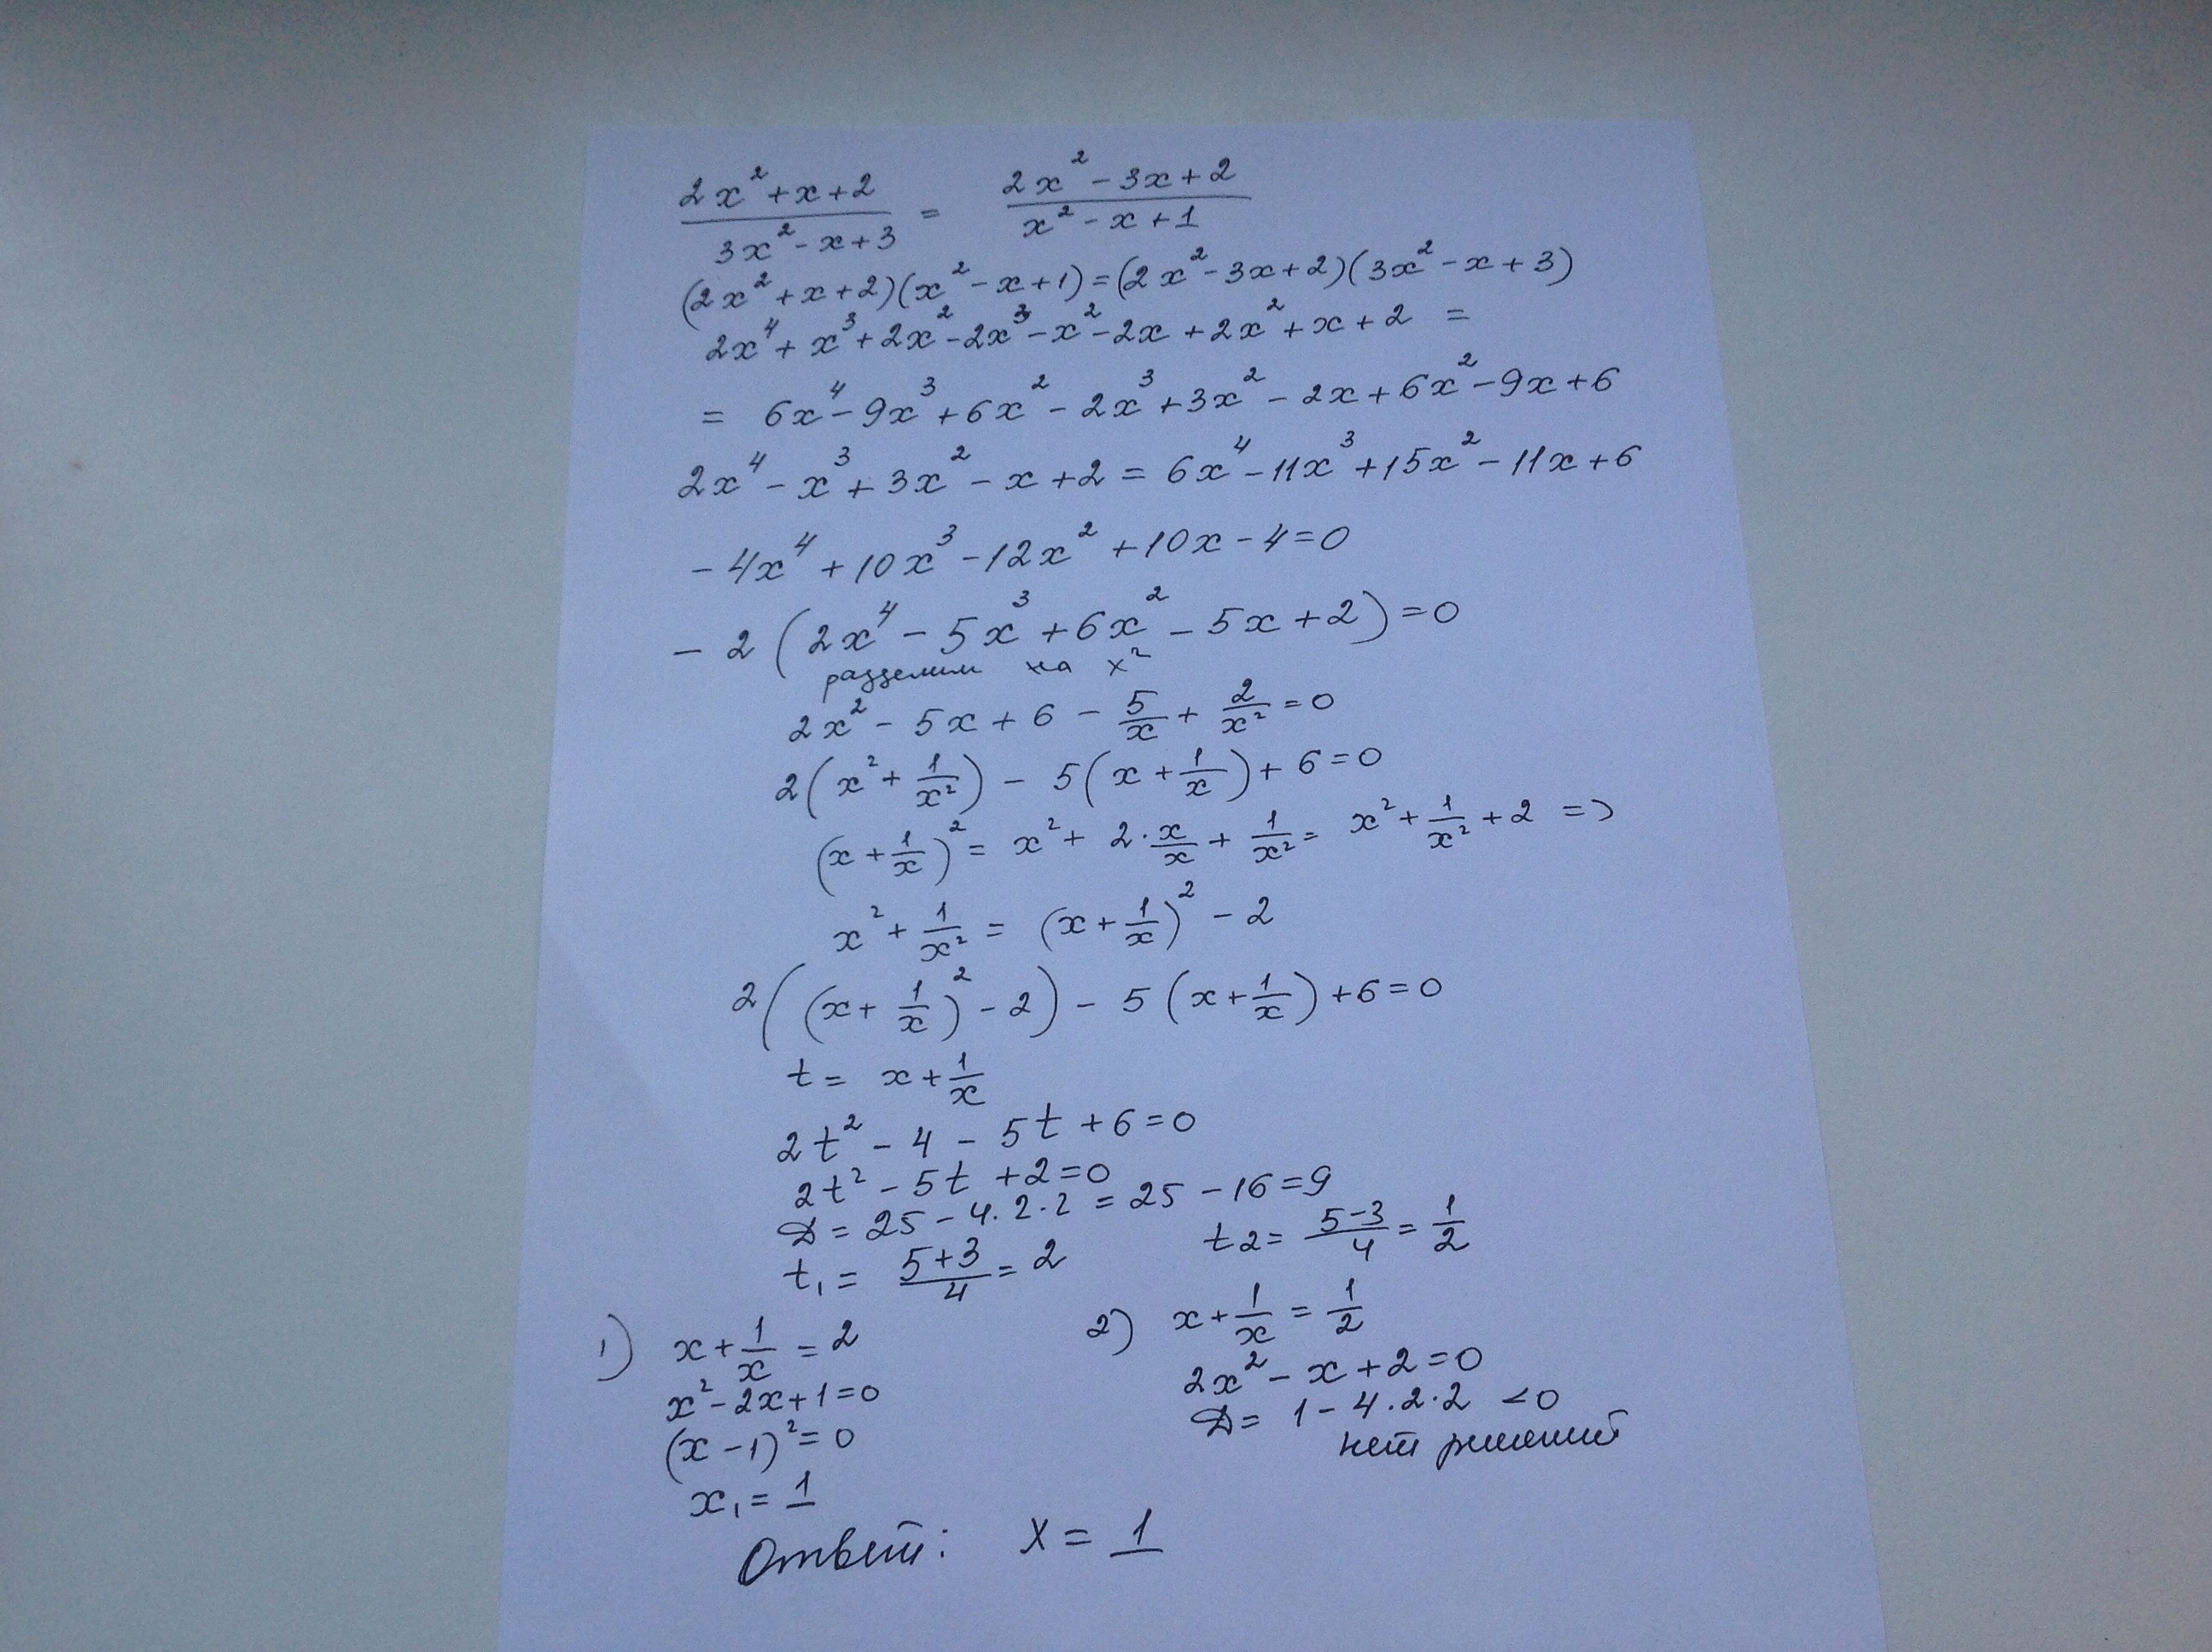 (2x² + x + 2)/(3x² - x + 3) = (2x² - 3x + 2)/(x² - x + 1)
(2x² + x + 2)(x² - x + 1) = (2x² - 3x + 2)(3x² - x + 3)
2x⁴ + x³ + 2x² - 2x³ - x² - 2x + 2x² + x + 2 =
= 6x⁴ - 9x³ + 6x² - 2x³ + 3x² - 2x + 6x² - 9x + 6
2x⁴ - x³ + 3x² - x + 2 = 6x⁴ - 11x³ + 15x² - 11x + 6
- 4x⁴ + 10x³ - 12x² + 10x - 4 = 0
- 2(2x⁴ - 5x³ + 6x² - 5x + 2) = 0
разделим на x²
2x² - 5x + 6 - 5/x + 2/x² = 0
2(x² + 1/x²) - 5(x + 1/x) + 6 = 0
(x + 1/x)² = x² + 2·x/x + 1/x² = x² + 1/x² + 2 =>
x² + 1/x² = (x + 1/x)² - 2
2((x + 1/x)² - 2) - 5(x + 1/x) + 6 = 0
t = x + 1/x
2t² - 4 - 5t + 6 = 0
2t² - 5t + 2 = 0
D = 25 - 4·2·2 = 25 - 16 = 9
t₁ = (5+3)/4 = 2 t2 = (5-3)/4 = 1/2
1) x + 1/x = 2
x² - 2x + 1 = 0
(x - 1)² = 0
x₁ = 1
2) x + 1/x = 1/2
2x² - x + 2 = 0
D = 1 - 4·2·2 < 0
нет решений
Ответ: x = 1